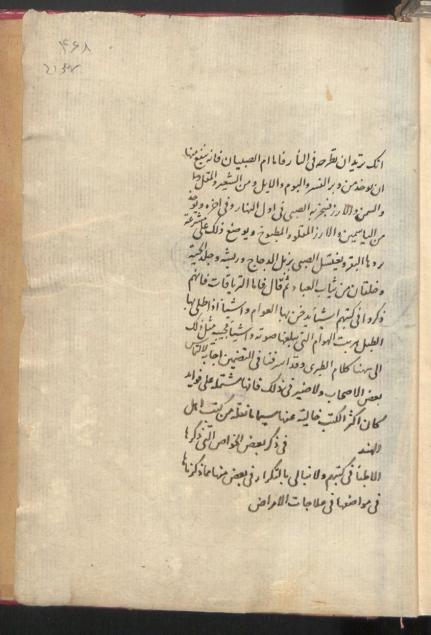 ۴۶۸
انك تريد ان تطرحه فى النار فاما ام الصبيان فانه ينبغى
ان يوخذ من وبر النسر والبوم والايل ومن الشعير والمقل
والسمن والارز فيبخر به الصبى فى اول النهار وفى اخره ويوخذ
من الياسمين والارز المقلو المطبوخ ويوضع ذلك على
البقر ويغتسل الصبى بزبل الدجاج وريشه وجلد الحية
وخلقان من ثياب العباد ثم قال فاما الترياقات فانهم
ذكروا فى كتبهم اشياء يدخن بها العوام واشياء اذا طلى بها
الطبل هربت الهوام التى يبلغها صوته واشياء عجيبة مثل ذلك
الى ههنا كلام الطبرى وقد اسرفنا فى التضمين اجابة لالتماس
بعض الاصحاب ولا ضير فى ذلك فانها مشتملة على فوايد
مكان اكثر الكتب خالية عنها سيما ما نقله من كتب اهل
الهند
فى ذكر بعض الخواص التى ذكرها
الاطباء فى كتبهم ولا نبالى بالتكرار فى بعض منها مما ذكرناها
فى مواضعها فى علاجات الامراض